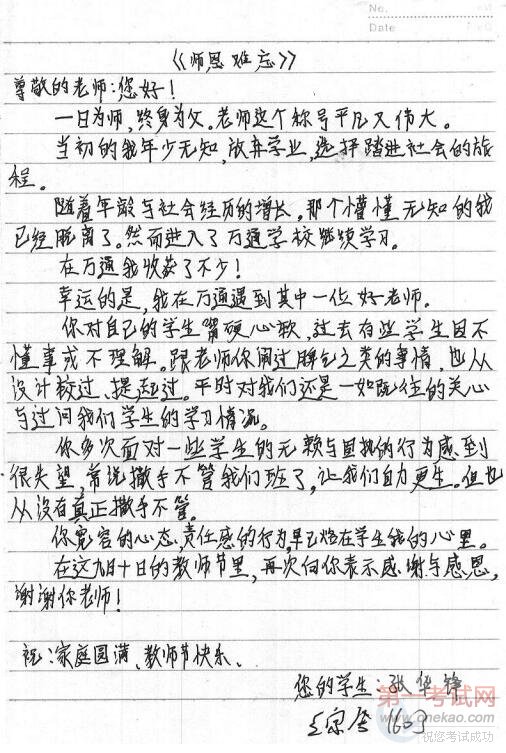 No.
Date
《师恩难忘》
尊敬的老师:您好!
一日为师,终身为父。老师这个称号平凡又伟大。
当初的我年少无知,放弃学业,选择踏进社会的旅
程。
随着年龄与社会经历的增长。那个懵懂无知的我
已经脱离了。然而进入了万通学校继续学习。
在万通我收获了不少!
幸运的是,我在万通遇到其中一位好老师。
你对自己的学生嘴硬心软,过去有些学生因不
懂事或不理解。跟老师你闹过脾气之类的事情,也从
没计较过、提起过。平时对我们还是一如既往的关心
与过问我们学生的学习情况。
你多次面对一些学生的无赖与固执的行为感到
很失望,常说撒手不管我们班了,让我们自力更生。但也
从没有真正撒手不管。
你宽容的心态,责任感的行为,早已烙在学生我的心里。
在这九月十日的教师节里,再次向你表示感谢与感恩,
谢谢你老师!
祝:家庭圆满、教师节快乐、
您的学生:张华锋
1603
第一考试网
www.onekao.com
祝您考试成功